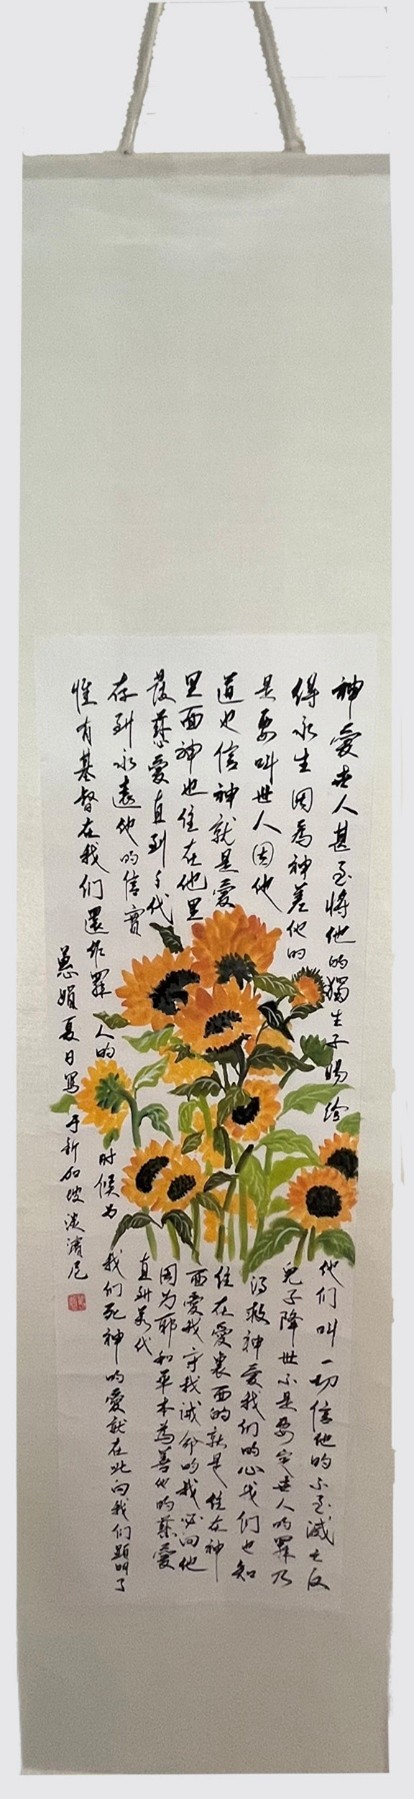 神愛世人甚至將他的獨生子賜给他们叫一切信他的不至滅亡反
得永生因爲神差他的兒子降世不是要定世人的罪乃
是要叫世人因他得救神愛我们的心我们也知
道也信神就是愛住在愛裏面的就是住在神
里面神也住在他里面愛我守我诫命的我必向他
發慈愛直到千代因为耶和華本為善他的慈愛
存到永遠他的信實直到萬代
惟有基督在我们還作罪人的时候为我们死神的愛就在此向我们顯明了
慧娟夏日寫于新加坡淡濱尼